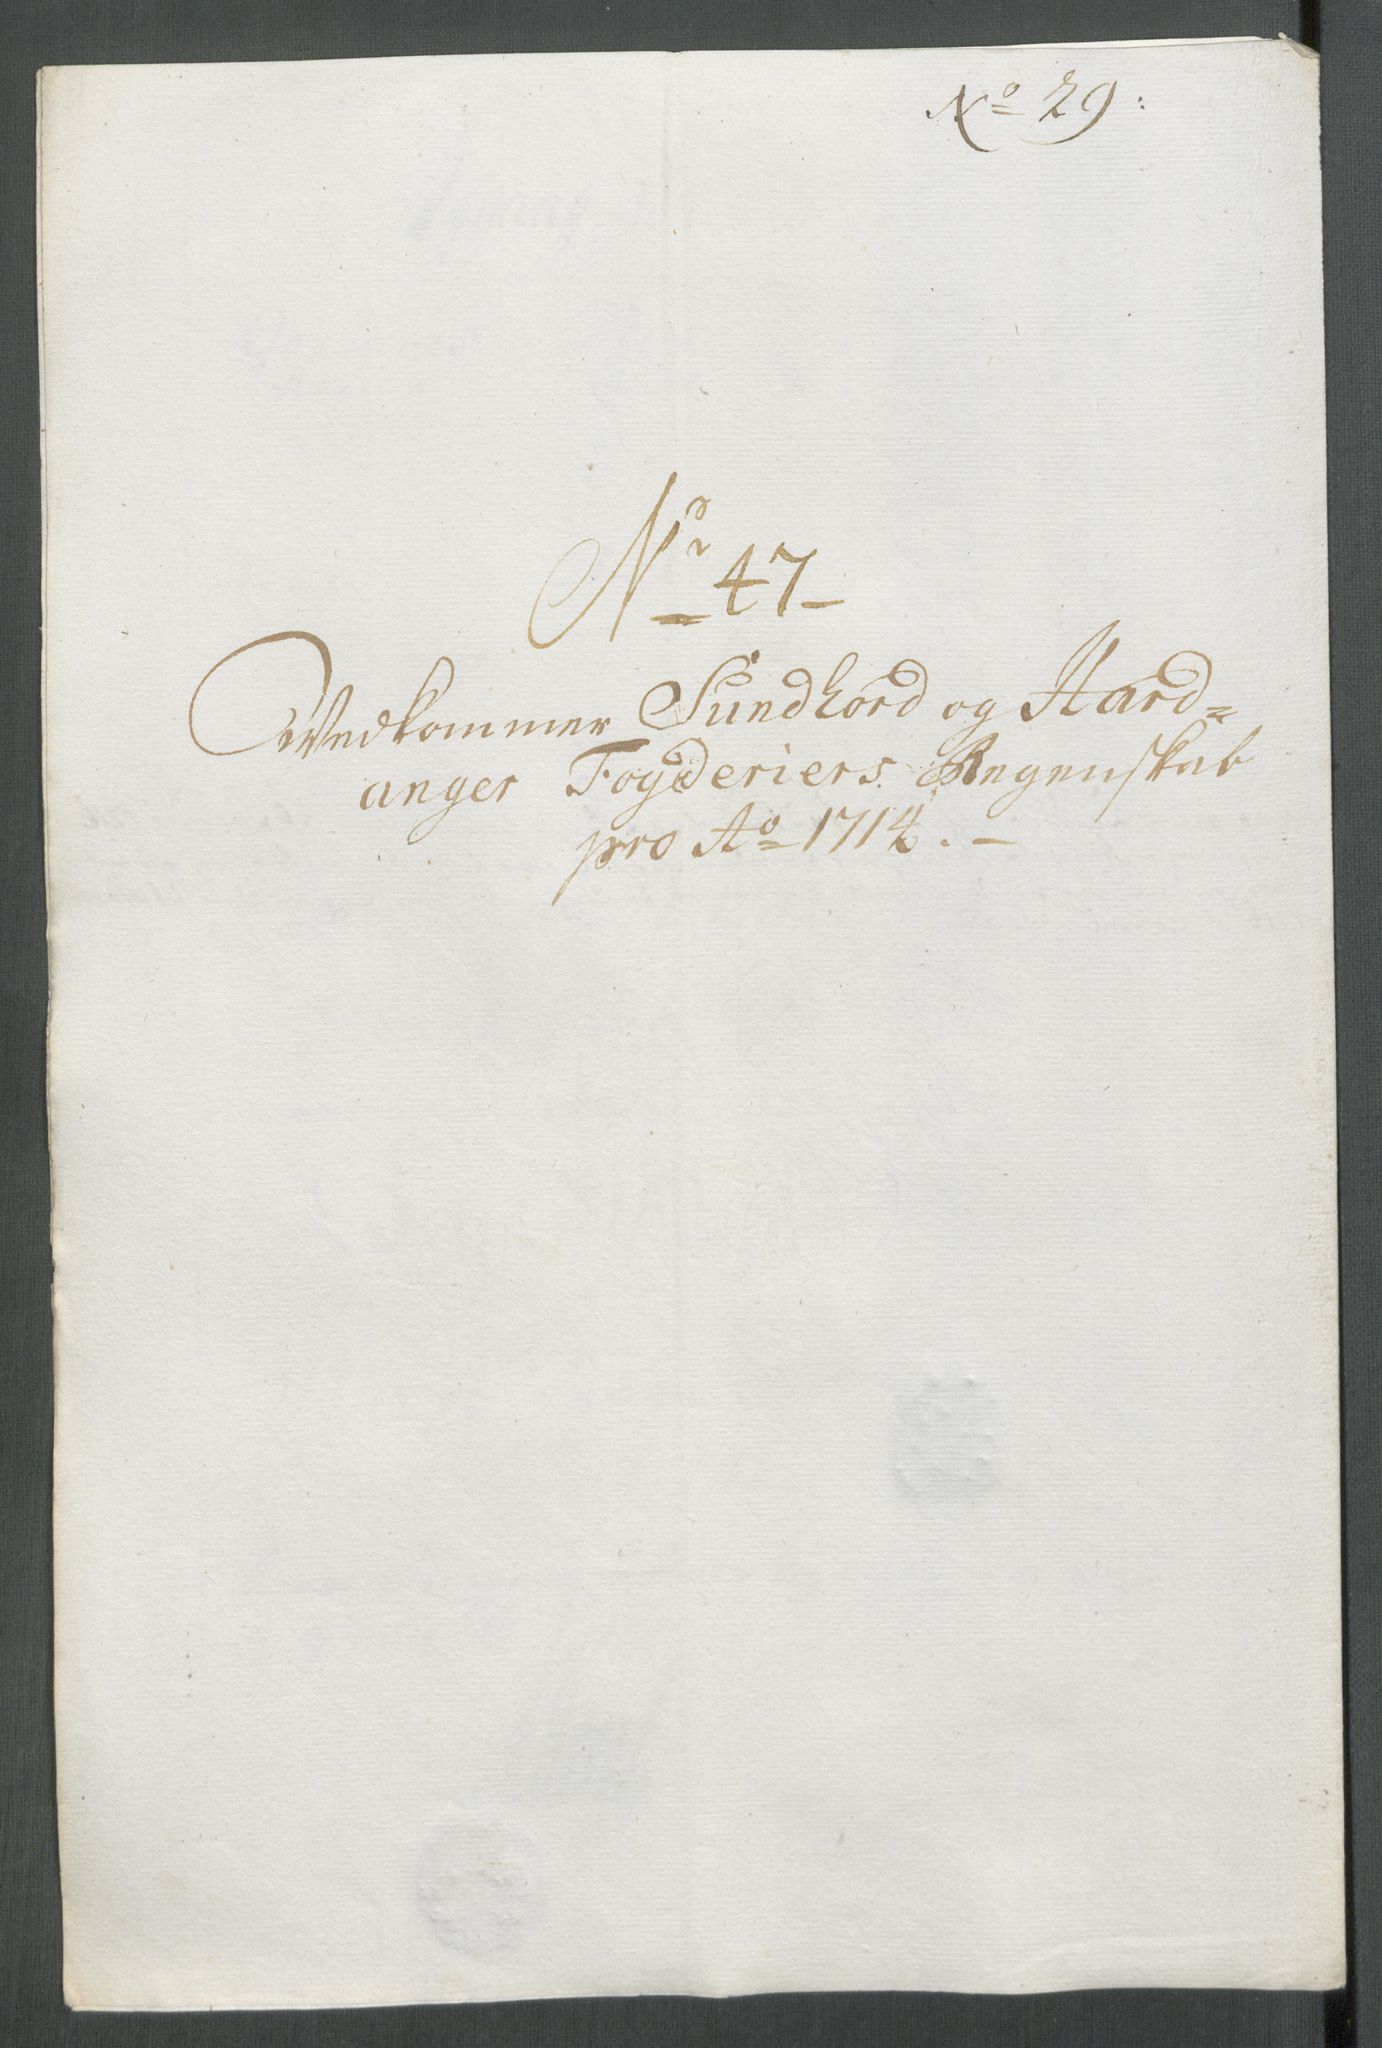 No 29:
Nr 47-
Vedkommer Sundhord og Hard=
anger Fogderiers Regenskab
pro Ao 1714. -